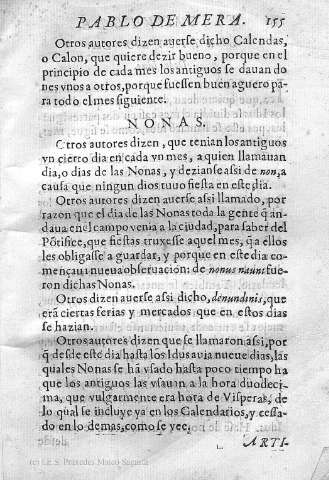 PABLO DE MERA. 155
Otros autores dizen auerse dicho Calendas,
o Calon, que quiere dezir bueno, porque en el
principio de cada mes los antiguos se dauan do
nes vnos a otros, porque fuessen buen aguero pa
ra todo el mes siguiente.
NONAS.
Otros autores dizen, que tenian los antiguos
vn cierto dia en cada vn mes, a quien llamauan
dia, o dias de las Nonas, y dezianse assi de non, a
causa que ningun dios tuuo fiesta en este dia.
Otros autores dizen auerse assi llamado, por
razon que el dia de las Nonas toda la gente q̃ an-
daua en el campo venia a la ciudad, para saber del
Põtifice, que fiestas truxesse aquel mes, q̃ a ellos
les obligasse a guardar, y porque en este dia co-
mençaui nueua obseruacion: de nonus nauni fue-
ron dichas Nonas.
Otros dizen auerse assi dicho, denundinis, que
erã ciertas ferias y mercados que en estos dias
se hazian.
Otros autores dizen que se llamaron assi, por
q̃ desde este dia hasta los Idus auia nueue dias, las
quales Nonas se hã vsado hasta poco tiempo ha
que los antiguos las vsauan a la hora duodeci-
ma, que vulgarmente era hora de Visperas, de
lo qual se incluye ya en los Calendarios, y cessa-
do en lo demas, como se vee.
ARTI-
(c) I.E.S. Práxedes Mateo Sagasta